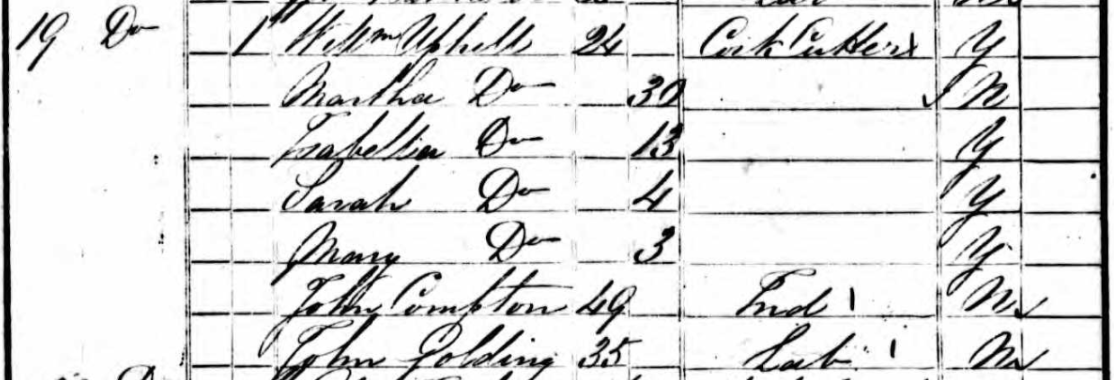 19 Do 1 Willm Uphill 24 Cork Cutter Y
Martha Do 30 N
Isabella Do 13 Y
Sarah Do 4 Y
Mary Do 3 Y
John Compton 49 Ind N
John Golding 35 Lab N
Do